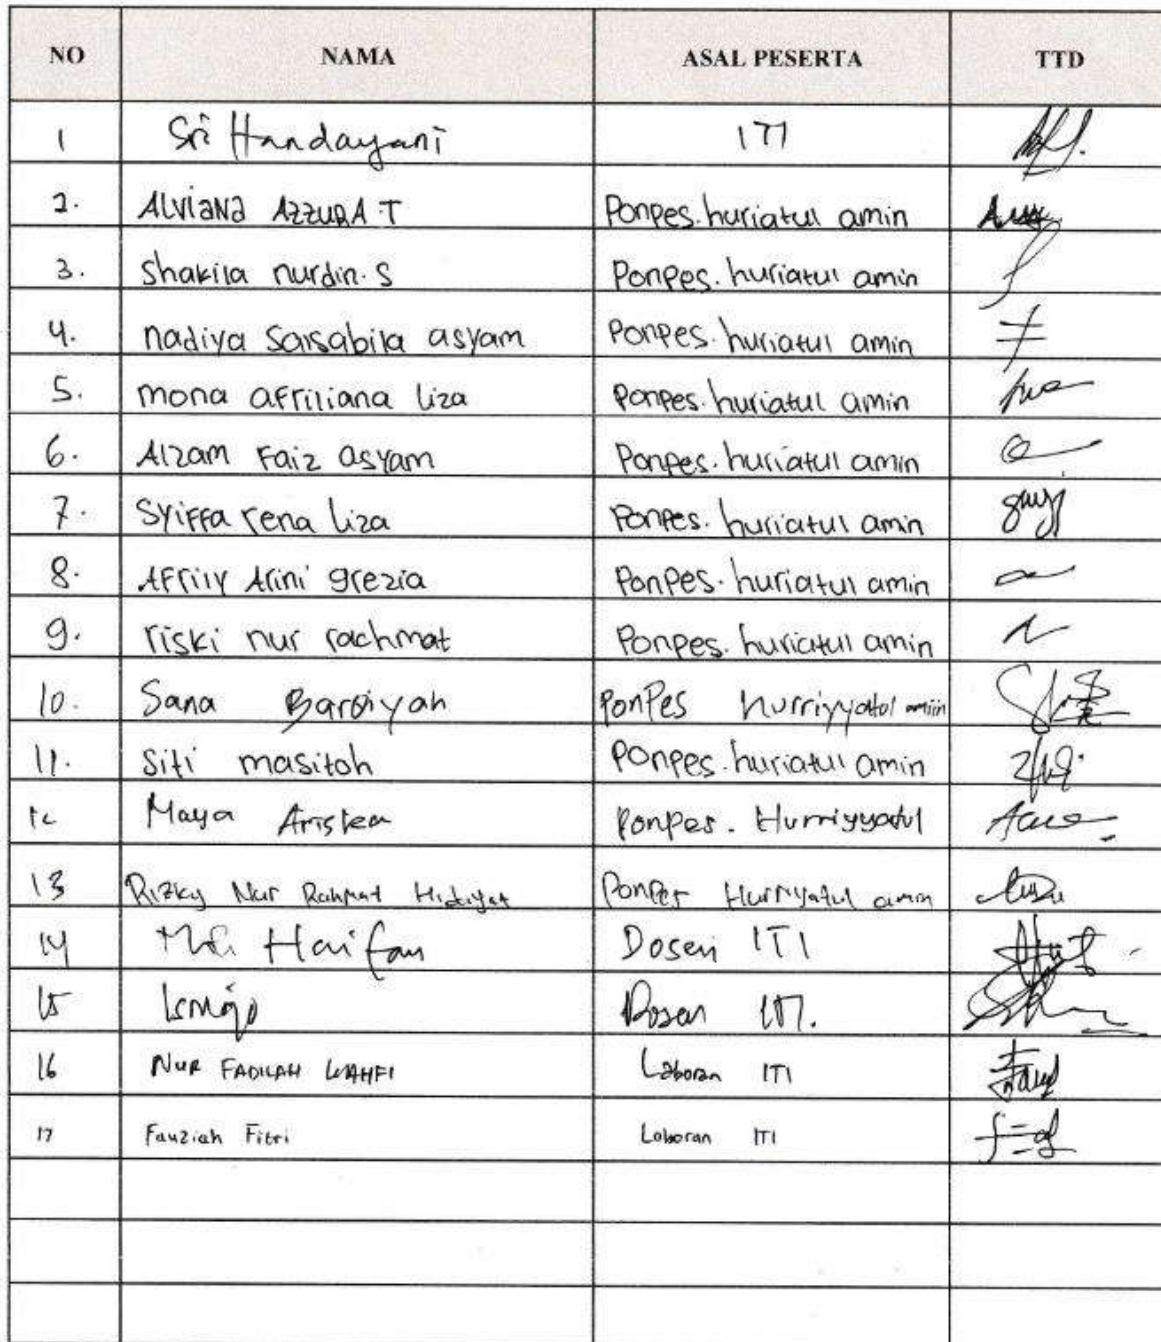 NO NAMA ASAL PESERTA TTD
1 Sri Handayani ITI
2. ALviana AzzuRA T Ponpes. huriatul amin
3. Shakila nurdin. S Ponpes. huriatul amin
4. nadiya Salsabila asyam Ponpes. huriatul amin
5. mona afriliana liza Ponpes. huriatul amin
6. Alzam Faiz asyam Ponpes. huriatul amin
7. Syiffa rena liza Ponpes. huriatul amin
8. Afrily Arini grezia Ponpes. huriatul amin
9. riski nur rachmat Ponpes. huriatul amin
10. Sana PonPes hurriyyatul amiin
11. Siti masitoh Ponpes. huriatul amin
12 Maya Ponpes. Hurriyyatul
13 Rizky Nur Rahmat Hidayat Ponpes Hurriyatul amin
14 Haifan Dosen ITI
15 Ismojo Dosen ITI.
16 NUR FADILAH WAHFI Laboran ITI
17 Fauziah Fitri Laboran ITI